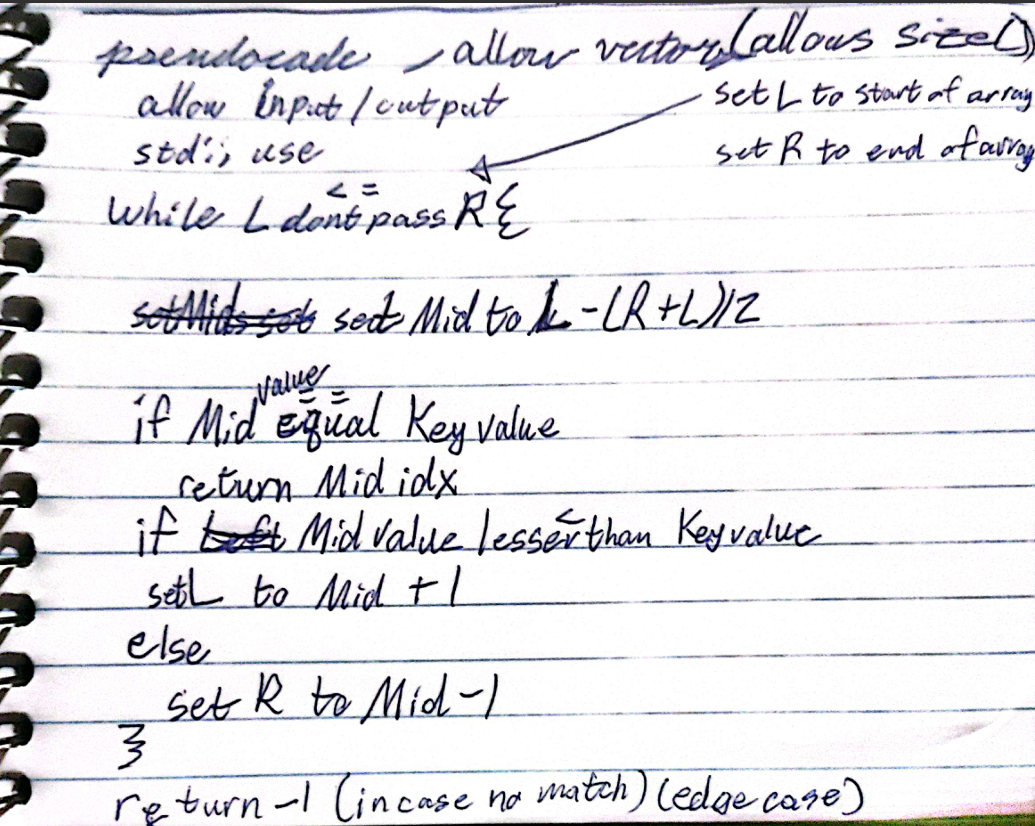 pseudocode , allow vector (allows size()
allow input/output
set L to start of array
std::, use
set R to end of array
< =
while L dont pass R {
set Mid to L -(R+L)/2
value
= =
if Mid equal Key value
return Mid idx
<
if Mid value lesser than Key value
set L to Mid + 1
else
set R to Mid -1
}
return -1 (in case no match) (edge case)